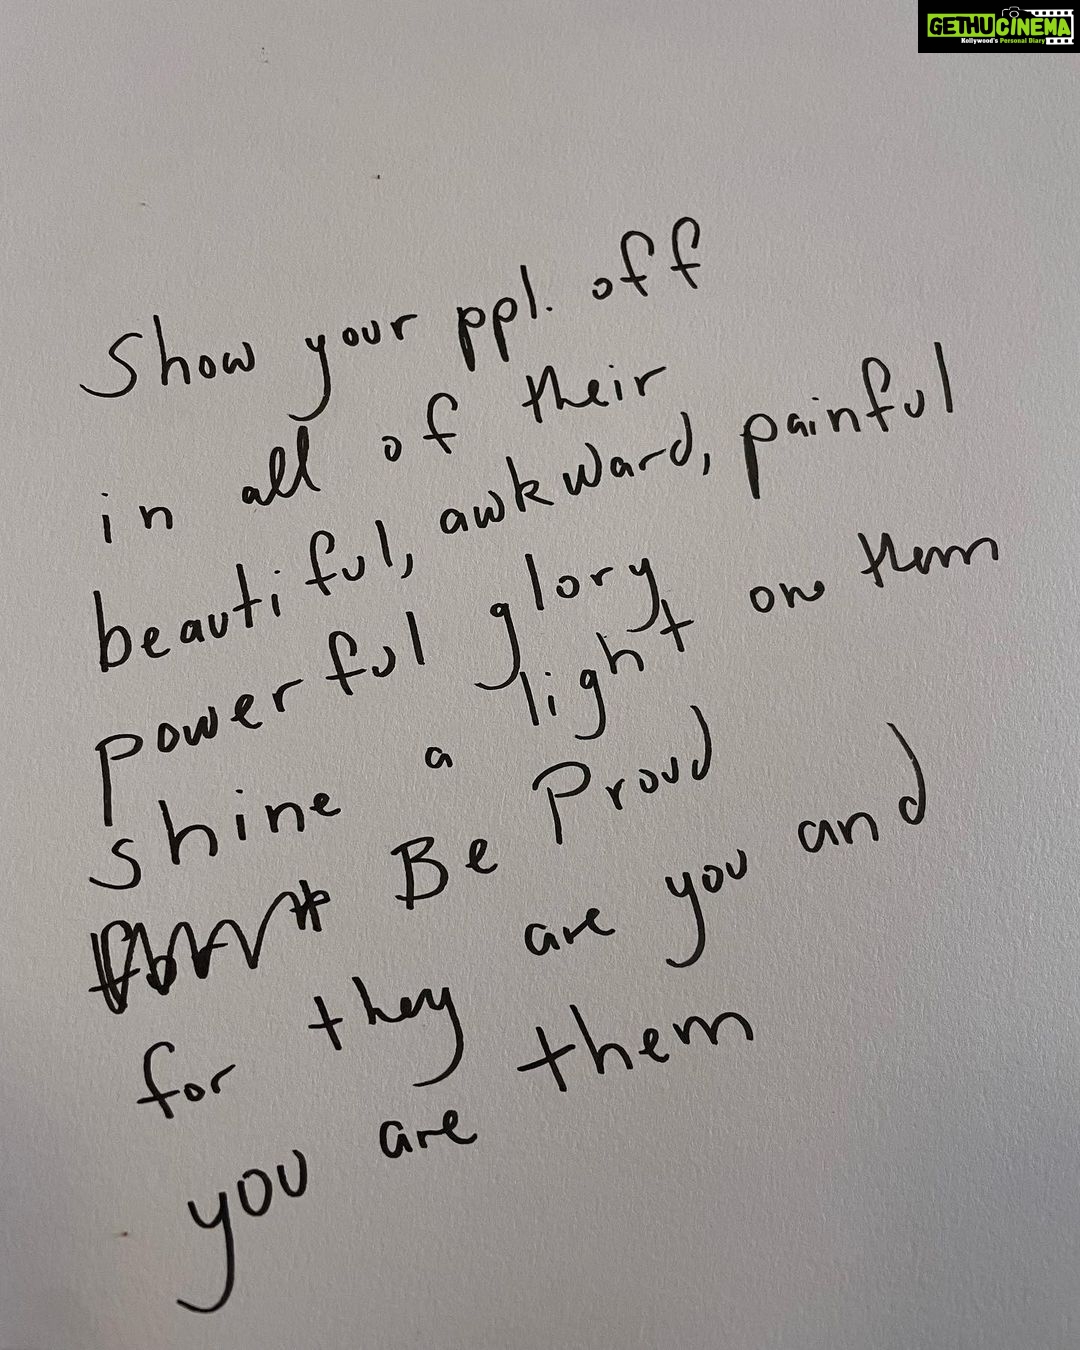 GETHUCINEMA
Kollywood's Personal Diary
Show your ppl. off
in all of their
beautiful, awkward, painful
powerful glory
shine a light on them
Be Proud
for they are you and
you are them